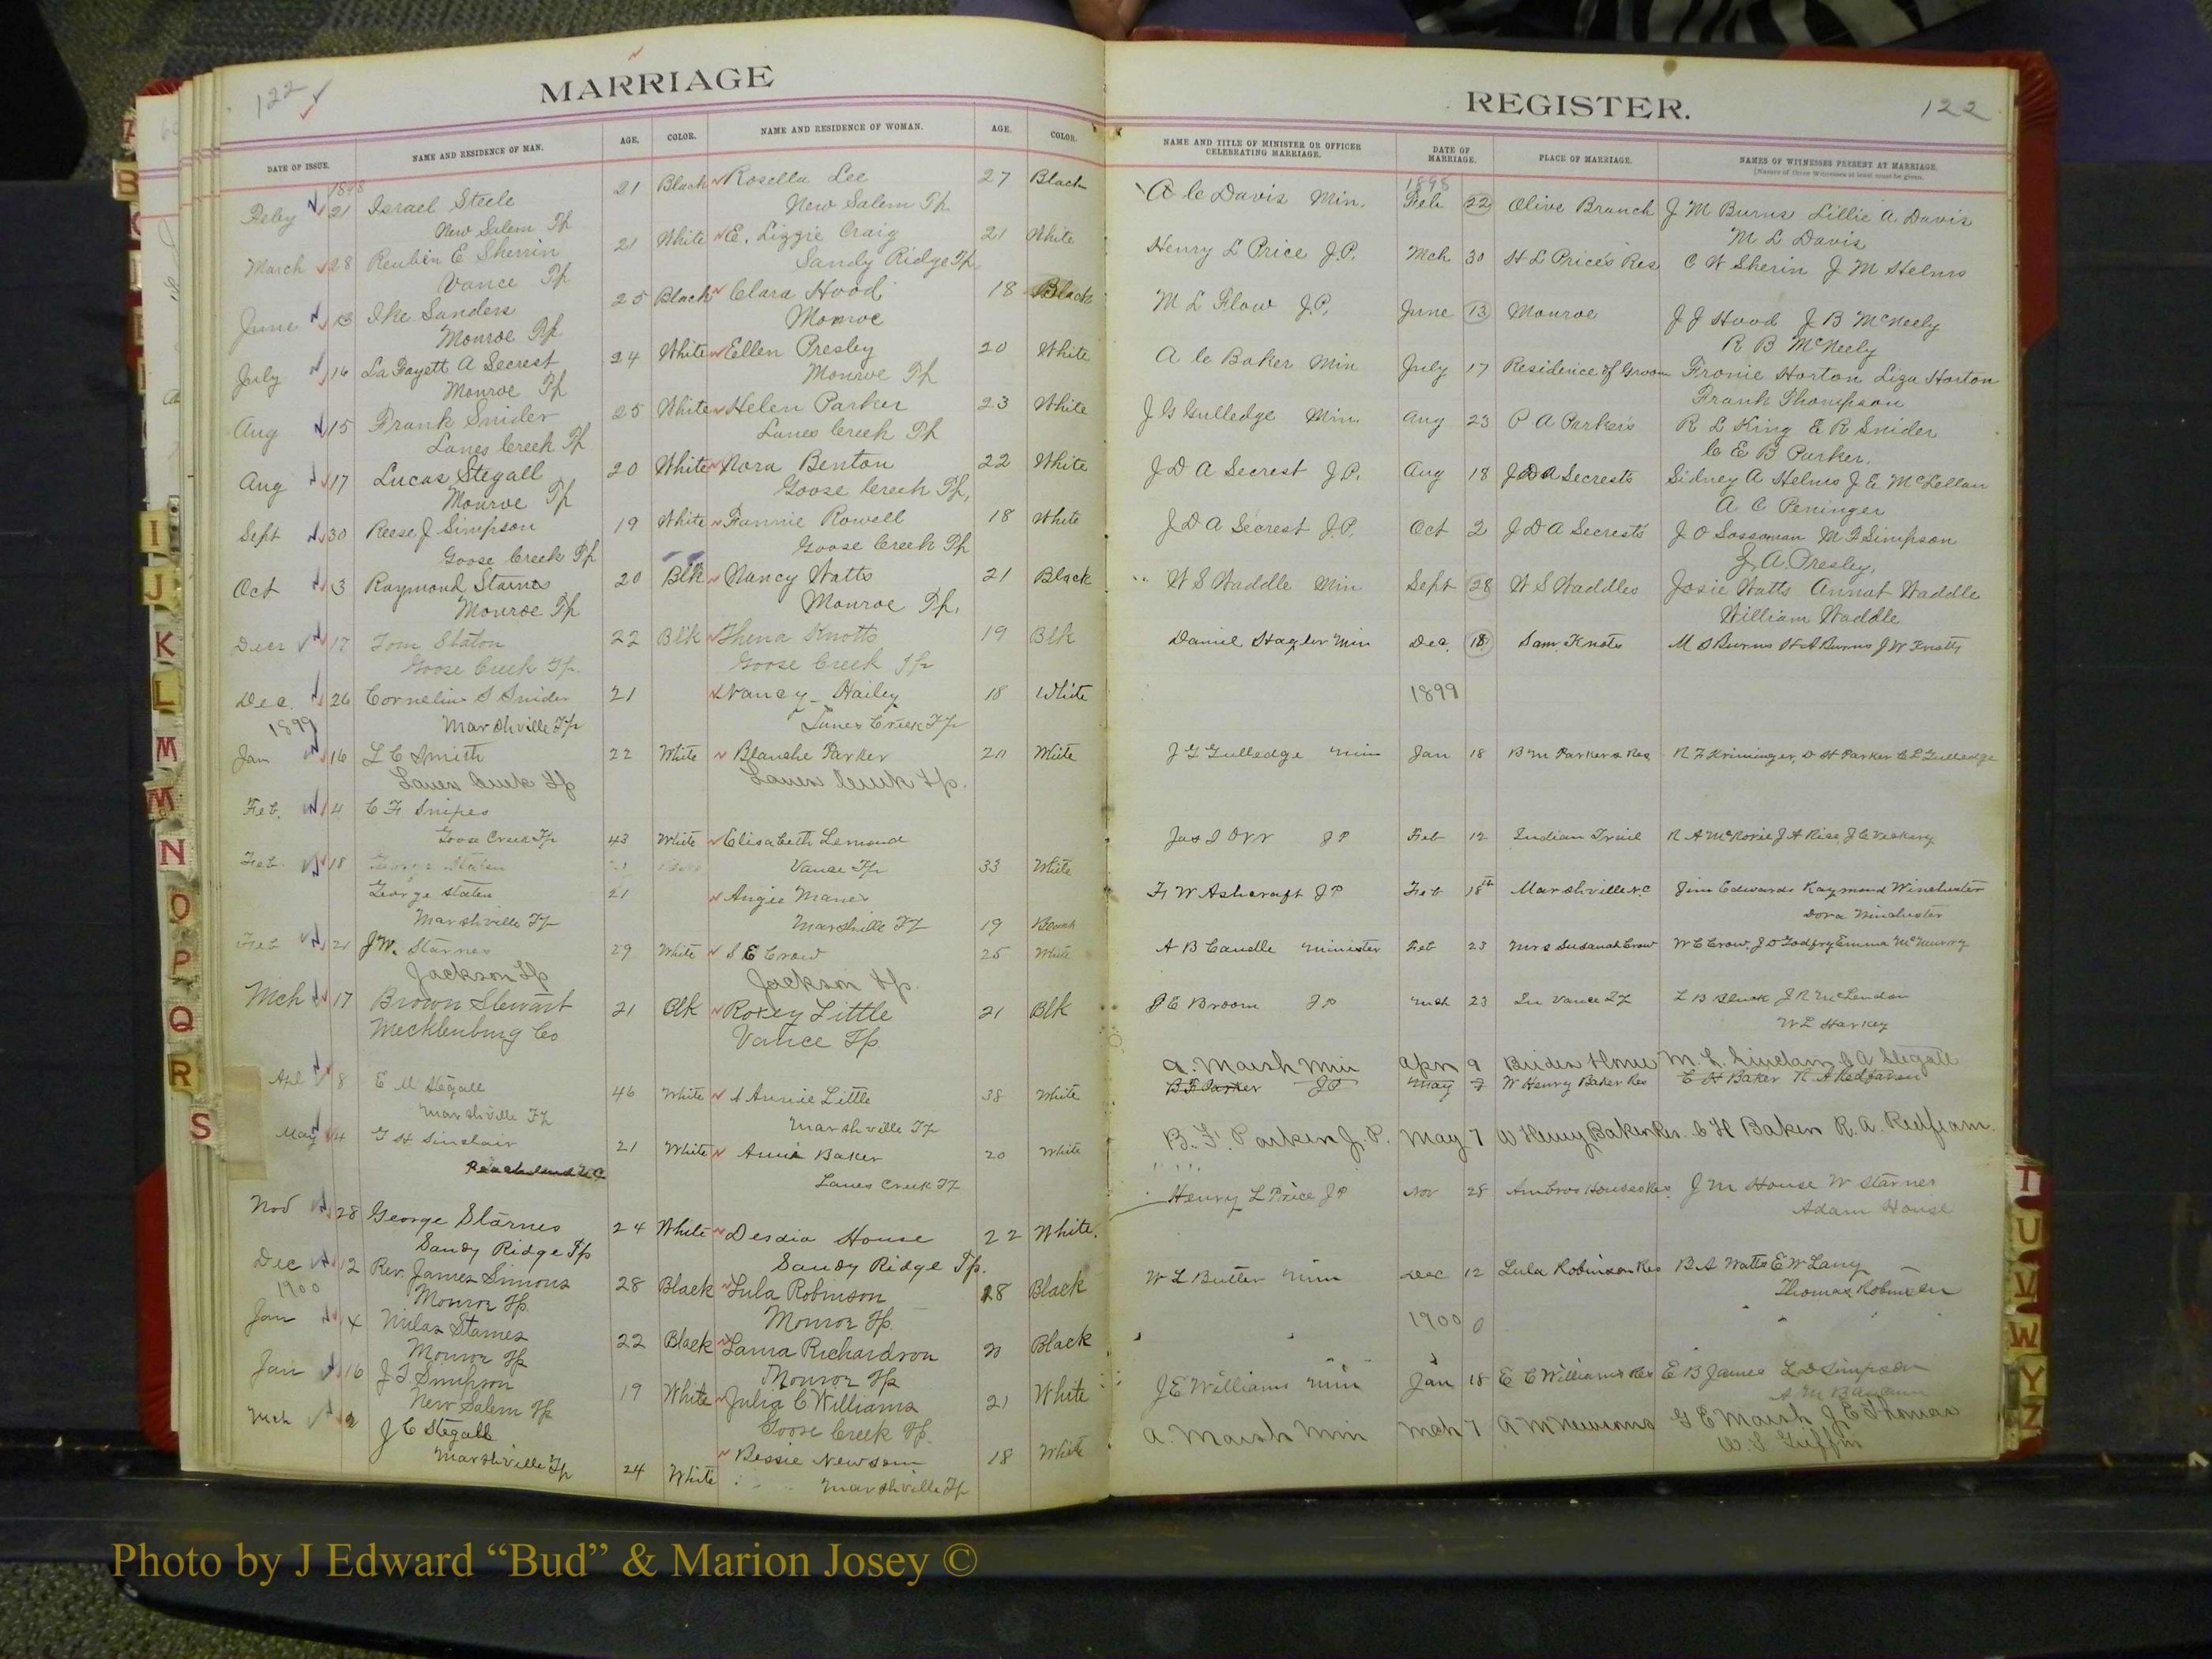 122
MARRIAGE
DATE OF ISSUE. NAME AND RESIDENCE OF MAN. AGE. COLOR. NAME AND RESIDENCE OF WOMAN. AGE. COLOR.
1898
Feby 21 Israel Steele 21 Black Rosella Lee 27 Black
New Salem Tp New Salem Tp
March 28 Reuben E Sherrin 21 White E. Lizzie Craig 21 White
Vance Tp Sandy Ridge Tp.
June 13 Ike Sanders 25 Black Clara Hood 18 Black
Monroe Tp Monroe
July 16 LaFayett A Secrest 24 White Ellen Presley 20 White
Monroe Tp Monroe Tp
Aug 15 Frank Snider 25 White Helen Parker 23 White
Lanes Creek Tp Lanes Creek Tp
Aug 17 Lucas Stegall 20 White Nora Benton 22 White
Monroe Tp Goose Creek Tp,
Sept 30 Reese J Simpson 19 White Fannie Rowell 18 White
Goose Creek Tp Goose Creek Tp
Oct 3 Raymond Starnes 20 Blk Nancy Watts 21 Black
Monroe Tp Monroe Tp,
Decr 17 Tom Staton 22 Blk Thena Knotts 19 Blk
Goose Creek Tp. Goose Creek Tp
Dec. 26 Cornelius S Snider 21 Nancy Hailey 18 White
1899 Marshville Tp Lanes Creek Tp
Jan 16 L C Smith 22 White Blanche Parker 20 White
Lanes Creek Tp Lanes Creek Tp.
Feb. 4 C F Snipes
Goose Creek Tp 43 White Elisabeth Lemond
Feb 18 Vance Tp 33 White
George Staten 21 Angie Maner
Marshville Tp Marshville Tp 19 Black
Feb 21 J.W. Starnes 29 White S E Crow 25 White
Jackson Tp Jackson Tp.
Mch 17 Brown Stewart 21 Blk Roxey Little 21 Blk
Mecklenburg Co Vance Tp
Apl 8 E M Stegall 46 White Annie Little 38 White
Marshville Tp Marshville Tp
May 4 G H Sinclair 21 White Annie Baker 20 White
Peachland N.C Lanes Creek Tp
Nov 28 George Starnes 24 White Dessia House 22 White.
Sandy Ridge Tp Sandy Ridge Tp.
Dec 12 Rev. James Simons 28 Black Lula Robinson 28 Black
1900 Monroe Tp. Monroe Tp
Jan 4 Milas Starnes 22 Black Laura Richardson 20 Black
Monroe Tp Monroe Tp
Jan 16 J T Simpson 19 White Julia C Williams 21 White
New Salem Tp Goose Creek Tp.
Mch 2 J C Stegall Bessie Newsom 18 White
Marshville Tp 24 White Marshville Tp
REGISTER.
122
NAME AND TITLE OF MINISTER OR OFFICER CELEBRATING MARRIAGE. DATE OF MARRIAGE. PLACE OF MARRIAGE. NAMES OF WITNESSES PRESENT AT MARRIAGE.
[Names of three Witnesses at least must be given.
1898
A C Davis Min. Feb 22 Olive Branch J M Burns Lillie A. Davis
M L Davis
Henry L Price J.P. Mch 30 H L Price's Res C W Sherin J M Helms
M L Flow J.P. June 13 Monroe J J Hood J B McNeely
R B McNeely
A C Baker Min July 17 Residence of Groom Fronie Horton Liza Horton
Frank Thompson
J G Gulledge Min. Aug 23 P A Parker's R L King E R Snider
C E B Parker.
J D A Secrest J.P. Aug 18 J D A Secrest's Sidney A Helms J E McLellan
A C Peninger
J D A Secrest J.P. Oct 2 J D A Secrest's J O Sossoman M F Simpson
J. A. Presley,
W S Waddle Min Sept 28 W S Waddles Josie Watts Annat Waddle
William Waddle
Daniel Hagler Min Dec. 18 Sam. Knots M S Burns H A Burns J W Knotts
1899
J G Gulledge Min Jan 18 B M Parkers Res R F Kriminger, D H Parker C L Gulledge
Jas I Orr J P Feb 12 Indian Trail R A McRorie J A Rice J C Vickery
F W Ashcraft J P Feb 18th Marshville N.C Jim Edwards Raymond Winchester
Dora Winchester
A B Caudle Minister Feb 23 Mrs Susanah Crow W C Crow, J D Godfry Emma McMurry
J E Broom J P Mch 23 In Vance Tp L B Black J R McLendon
W L Harkey
A. Marsh Min Apr 9 Brides Home M. L. Sinclair, J A Stegall
B F Parker J P May 7 W Henry Baker Res E H Baker R A Redfearn
B. F. Parker J. P. May 7 W Henry Baker Res. C H Baker R. A. Redfearn.
Henry L Price J P Nov 28 Ambros Houses Res J M House W Starnes
Adam House
W L Butler Min Dec 12 Lula Robinson Res B A Watts E W Lany
Thomas Robinson
1900
J E Williams Min Jan 18 E C Williams Res E B James L D Simpson
A. Marsh Min Mch 7 A M Newsoms G E Marsh J E Thomas
W S Griffin
I
J
K
L
M
M
N
O
P
Q
R
S
T
U
V
W
Y
Z
Photo by J Edward “Bud” & Marion Josey ©